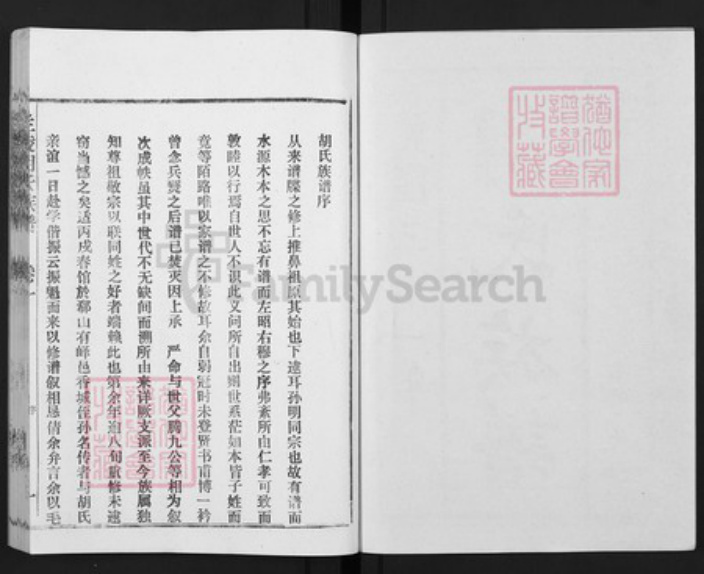 胡氏族谱序
从来谱牒之修上推鼻祖原其始也下逮耳孙明同宗也故有谱而
水源木本之思不忘有谱而左昭右穆之序弗紊所由仁孝可致而
敦睦以行焉自世人不识此义问所自出则世系茫如本皆子姓而
竟等陌路唯以家谱之不修故耳余自弱冠时未登贤书甫博一衿
曾念兵燹之后谱已焚灭因上承 严命与世父腾九公等相为叙
次成帙虽其中世代不无缺间而溯所由来详厥支派至今族属独
知尊祖敬宗以联同姓之好者端赖此也第余年逾八旬重修未逮
窃当憾之矣适丙戌春馆於邹山有峄邑香城侄孙名传者与胡氏
亲谊一日赴学偕振云振魁而来以修谱叙相恳倩余弁言余以毛
胡氏族谱 卷一
序
一
FamilySearch
谱学会
收藏
谱学会
收藏